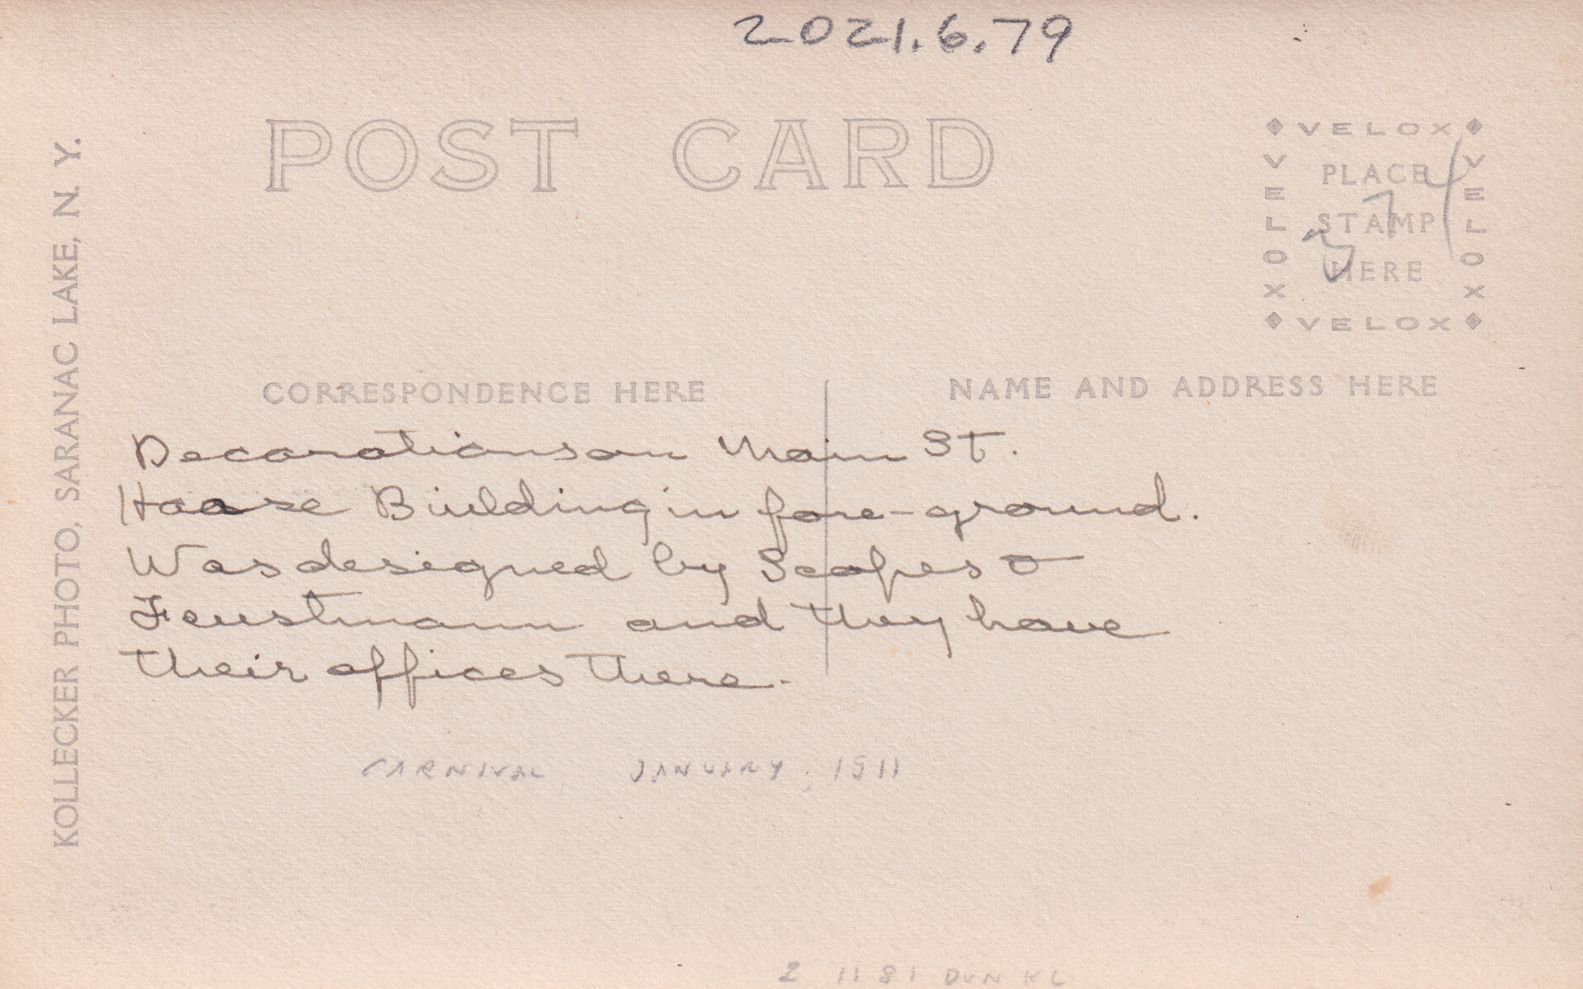 2021.6.79
POST CARD
VELOX
VELOX
VELOX
VELOX
PLACE
STAMP
HERE
KOLLECKER PHOTO, SARANAC LAKE, N. Y.
CORRESPONDENCE HERE
NAME AND ADDRESS HERE
Decorations on Main St.
Haase Building in fore-ground.
Was designed by Scopes &
Feustmann and they have
their offices there.
CARNIVAL, JANUARY, 1911